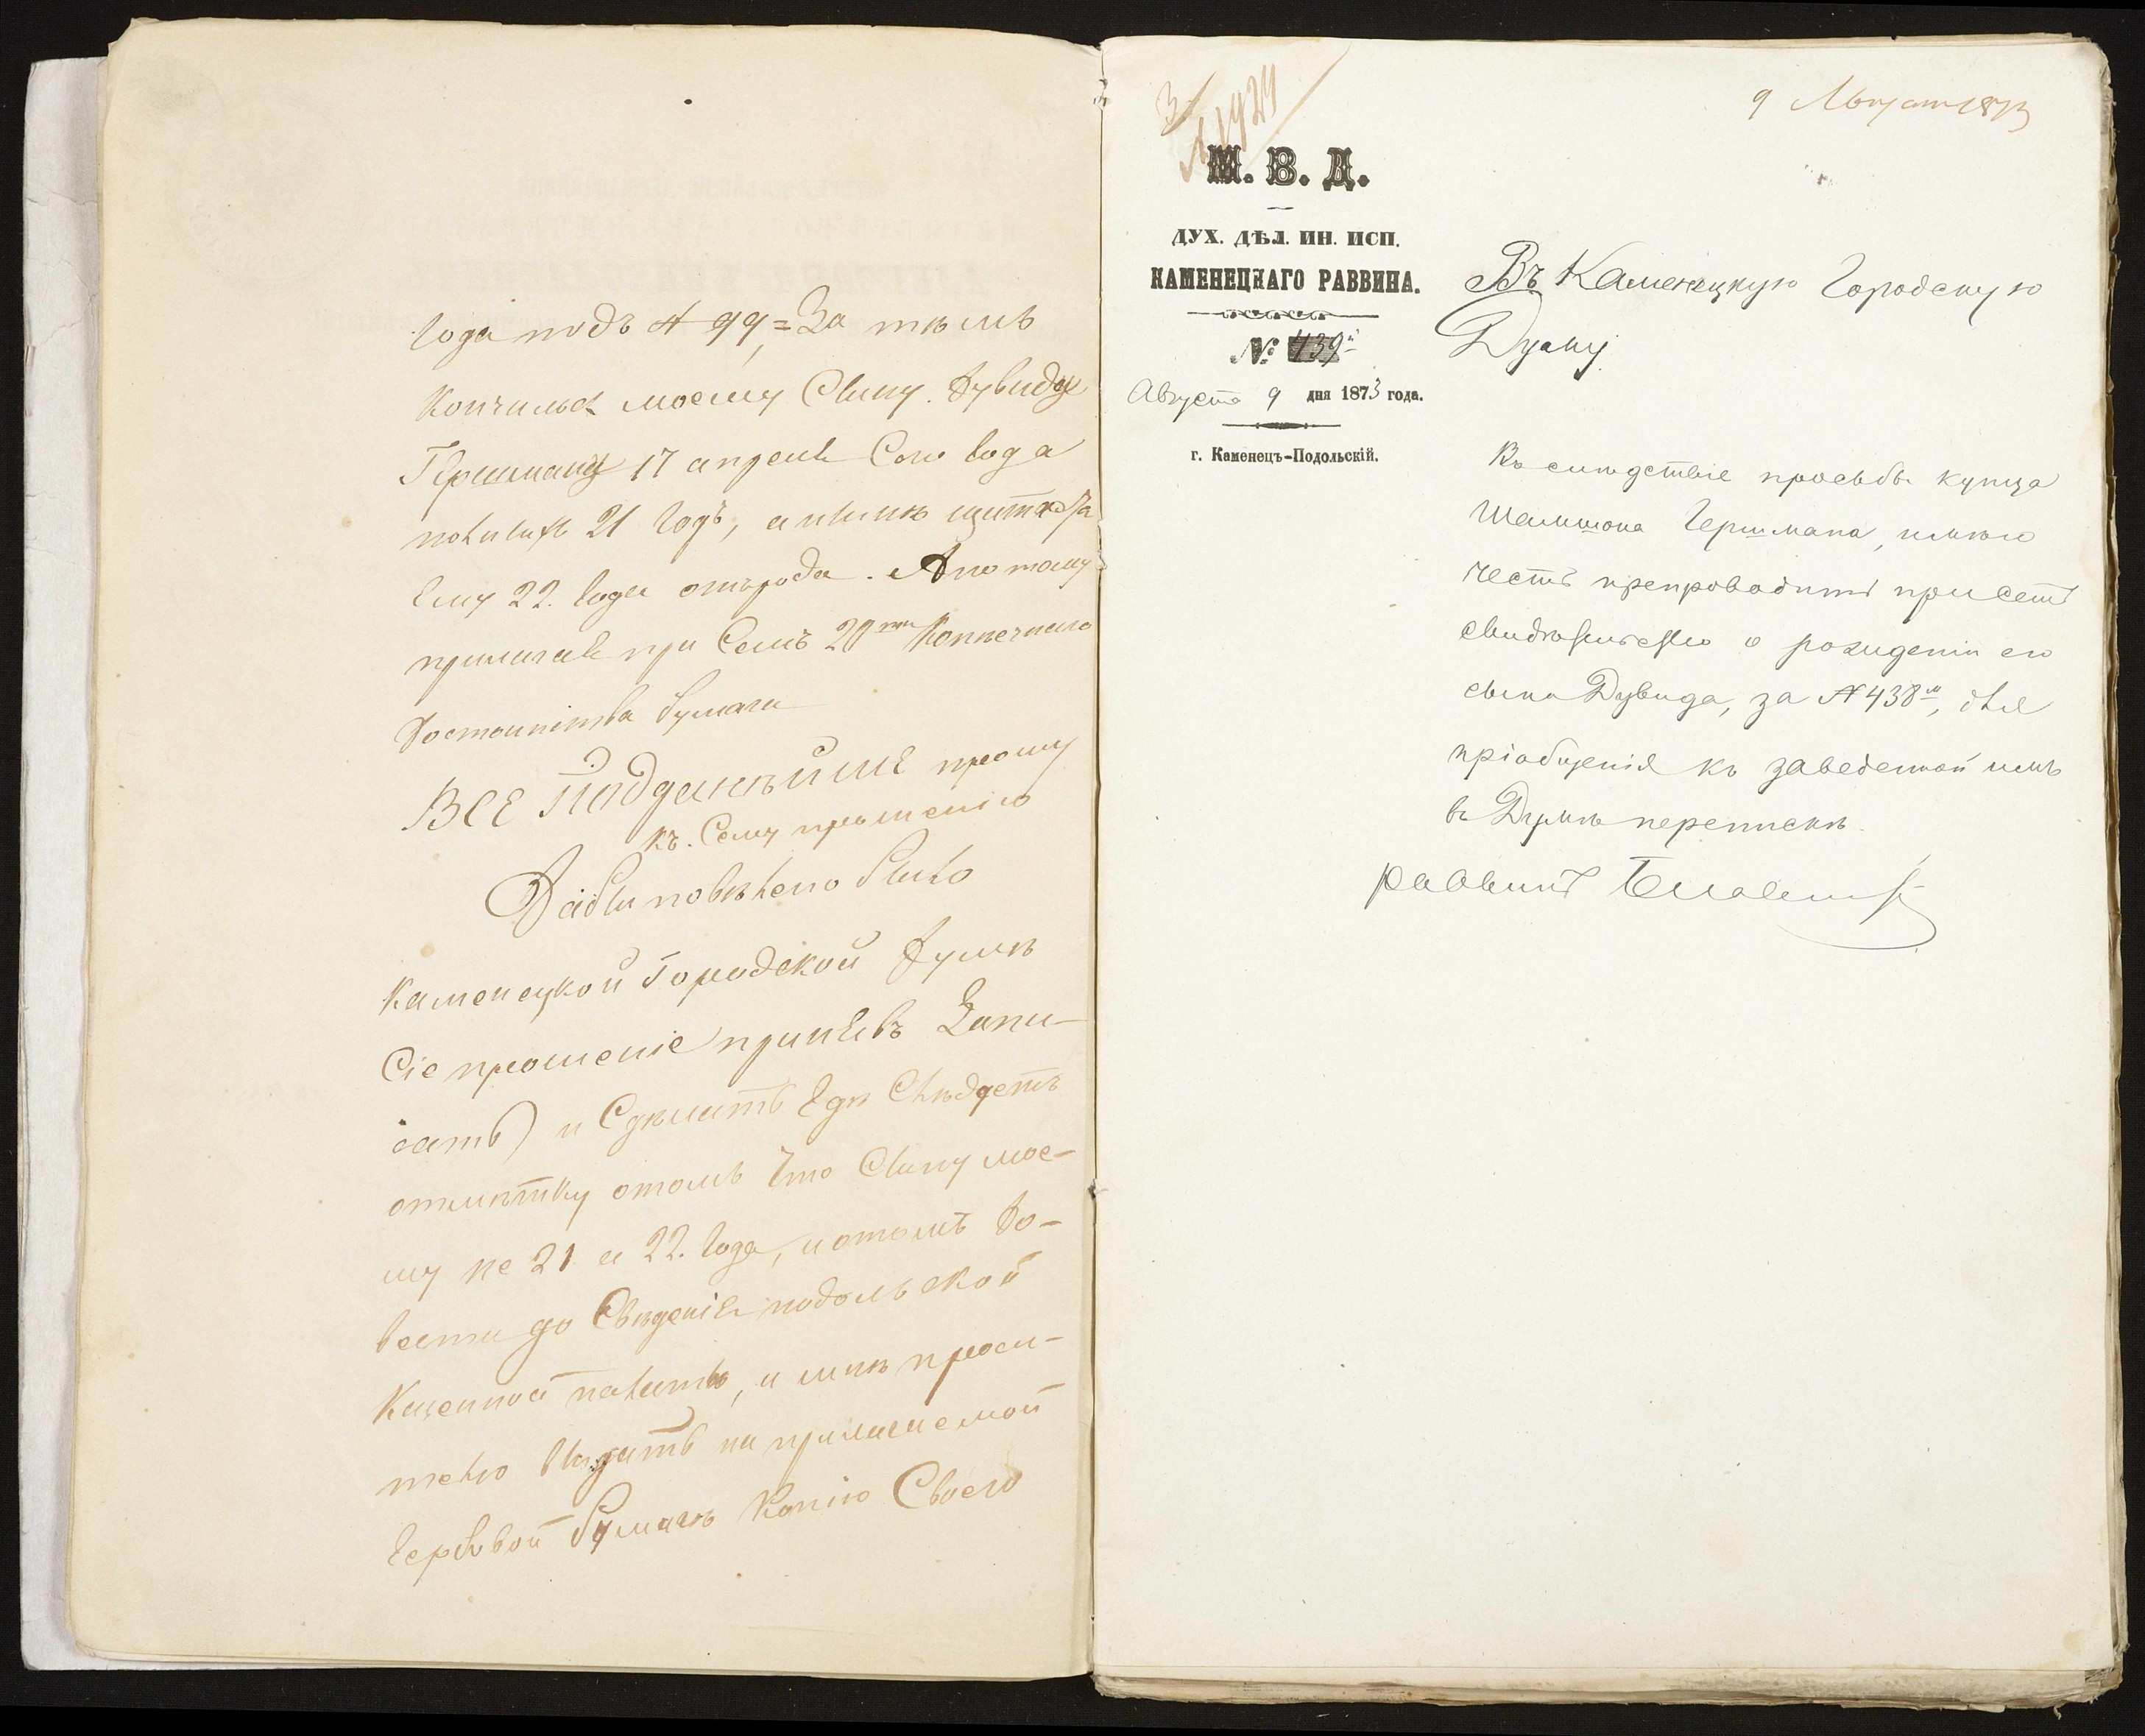 Года подъ № 99, = За тѣмъ
Кончилось моему Сыну. Дувиду
Гершману 17 апреля Сего Года
21 Годъ, а нынѣ щитается
Ему 22. Года отъ рода. А по тому
прилагая при Семъ 20ти Копѣечнаго
Достоинства бумага
ВСЕ Подданѣйше прошу
къ. Сему прошенію
Дабы повѣлено было
Каменецкой Городской Думѣ
Сіе прошеніе принявъ Запи-
сать и Сдѣлать Гдѣ Слѣдуетъ
отмѣтку отомъ Что Сыну мое-
му не 21 а 22. Года, и отомъ до-
вести до Свѣденія подольской
Казенной палаты, и мнѣ проси-
телю Выдать на прилагаемой
Гербовой бумагѣ Копію Своего
3
№ 1924
9 Август 1873
М. В. Д.
ДУХ. ДѢЛ. ИН. ИСП.
КАМЕНЕЦКАГО РАВВИНА.
№ 439й
Августа 9 дня 1873 года.
г. Каменецъ-Подольскій.
Въ Каменецкую Городскую
Думу.
Въ слѣдствіе просьбы купца
Шамшона Гершмана, имѣю
честь препроводить при семъ
свидѣтельство о рожденіи его
сына Дувида, за № 438м, для
пріобщенія къ заведенной имъ
въ Думѣ перепискѣ.
раввинъ